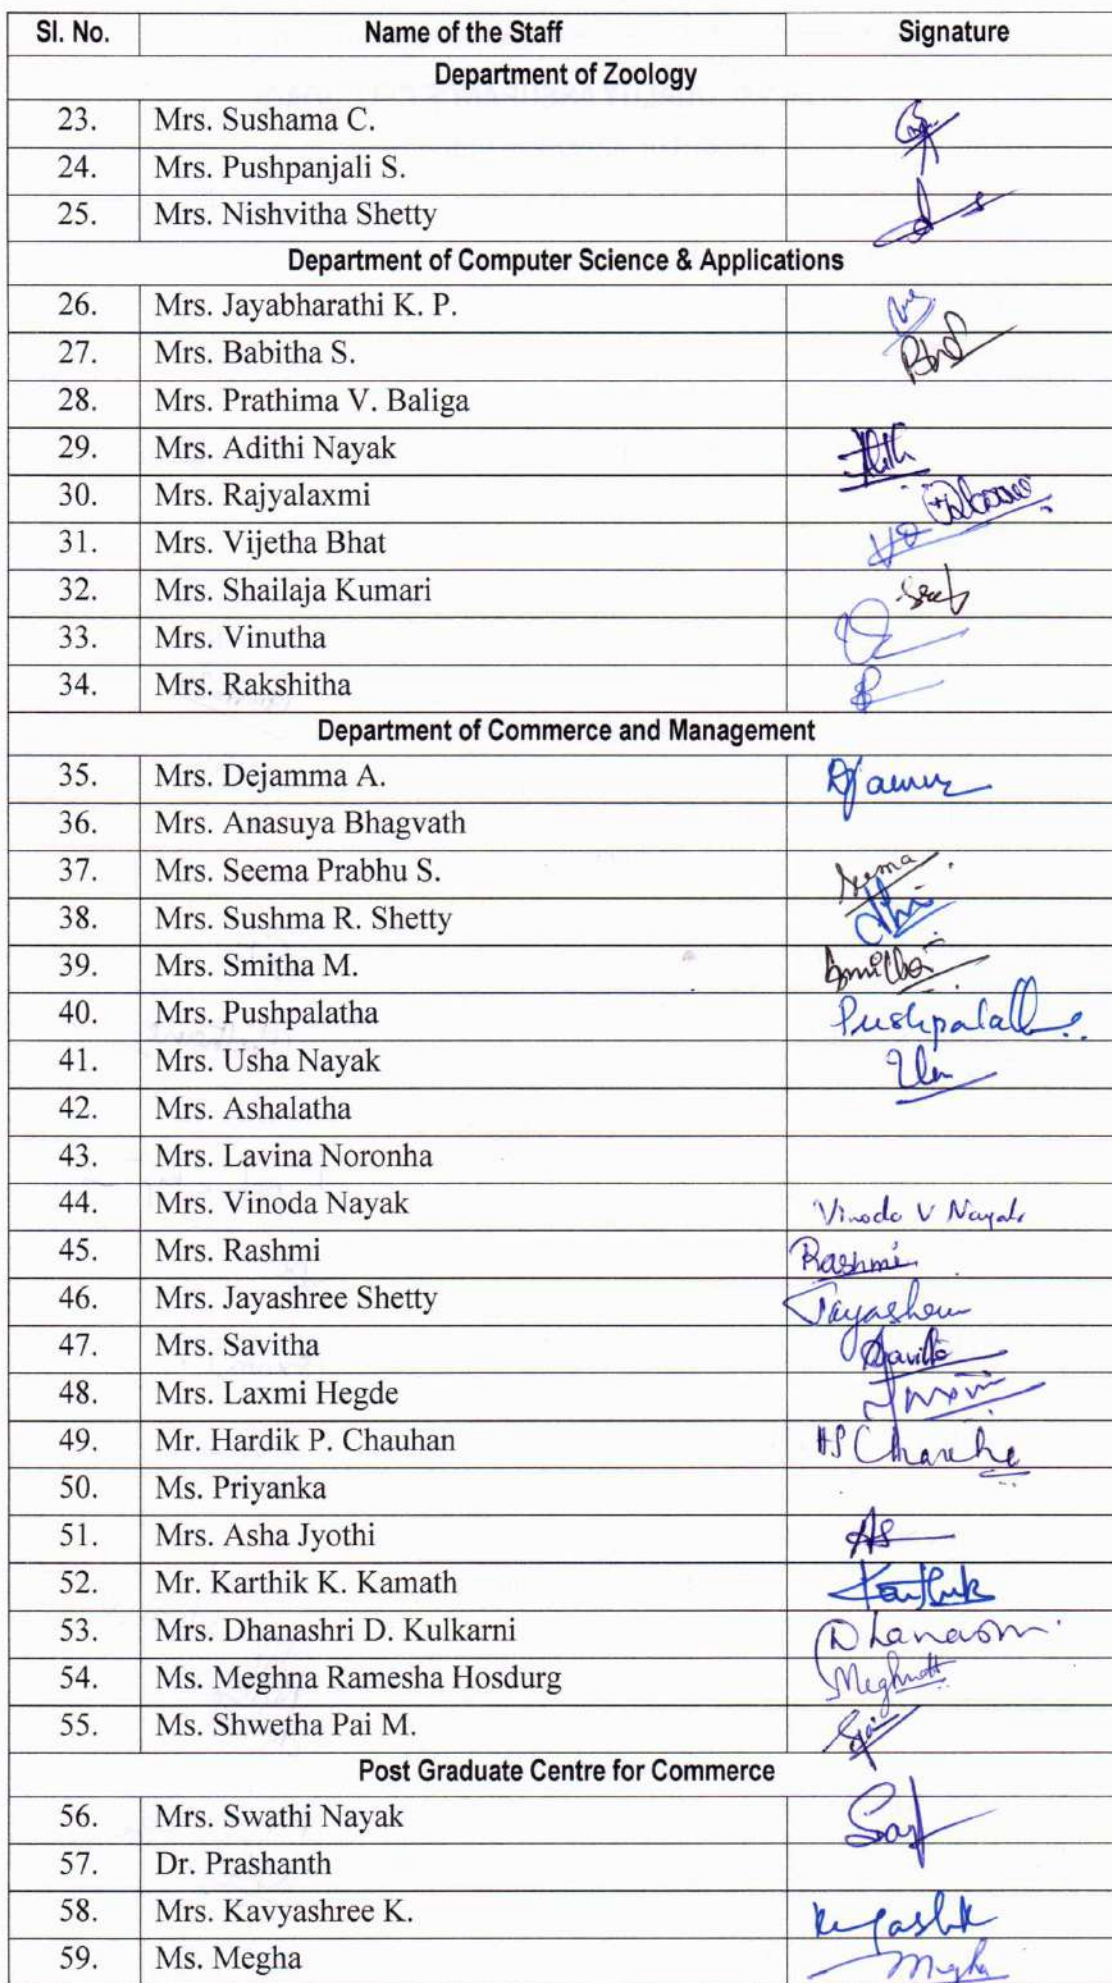 Sl. No. Name of the Staff Signature
Department of Zoology
23. Mrs. Sushama C.
24. Mrs. Pushpanjali S.
25. Mrs. Nishvitha Shetty
Department of Computer Science & Applications
26. Mrs. Jayabharathi K. P.
27. Mrs. Babitha S.
28. Mrs. Prathima V. Baliga
29. Mrs. Adithi Nayak
30. Mrs. Rajyalaxmi
31. Mrs. Vijetha Bhat
32. Mrs. Shailaja Kumari
33. Mrs. Vinutha
34. Mrs. Rakshitha
Department of Commerce and Management
35. Mrs. Dejamma A.
36. Mrs. Anasuya Bhagvath
37. Mrs. Seema Prabhu S.
38. Mrs. Sushma R. Shetty
39. Mrs. Smitha M.
40. Mrs. Pushpalatha
41. Mrs. Usha Nayak
42. Mrs. Ashalatha
43. Mrs. Lavina Noronha
44. Mrs. Vinoda Nayak Vinoda V Nayak
45. Mrs. Rashmi Rashmi
46. Mrs. Jayashree Shetty
47. Mrs. Savitha Savitha
48. Mrs. Laxmi Hegde
49. Mr. Hardik P. Chauhan
50. Ms. Priyanka
51. Mrs. Asha Jyothi
52. Mr. Karthik K. Kamath Karthik
53. Mrs. Dhanashri D. Kulkarni
54. Ms. Meghna Ramesha Hosdurg
55. Ms. Shwetha Pai M.
Post Graduate Centre for Commerce
56. Mrs. Swathi Nayak
57. Dr. Prashanth
58. Mrs. Kavyashree K.
59. Ms. Megha Megha